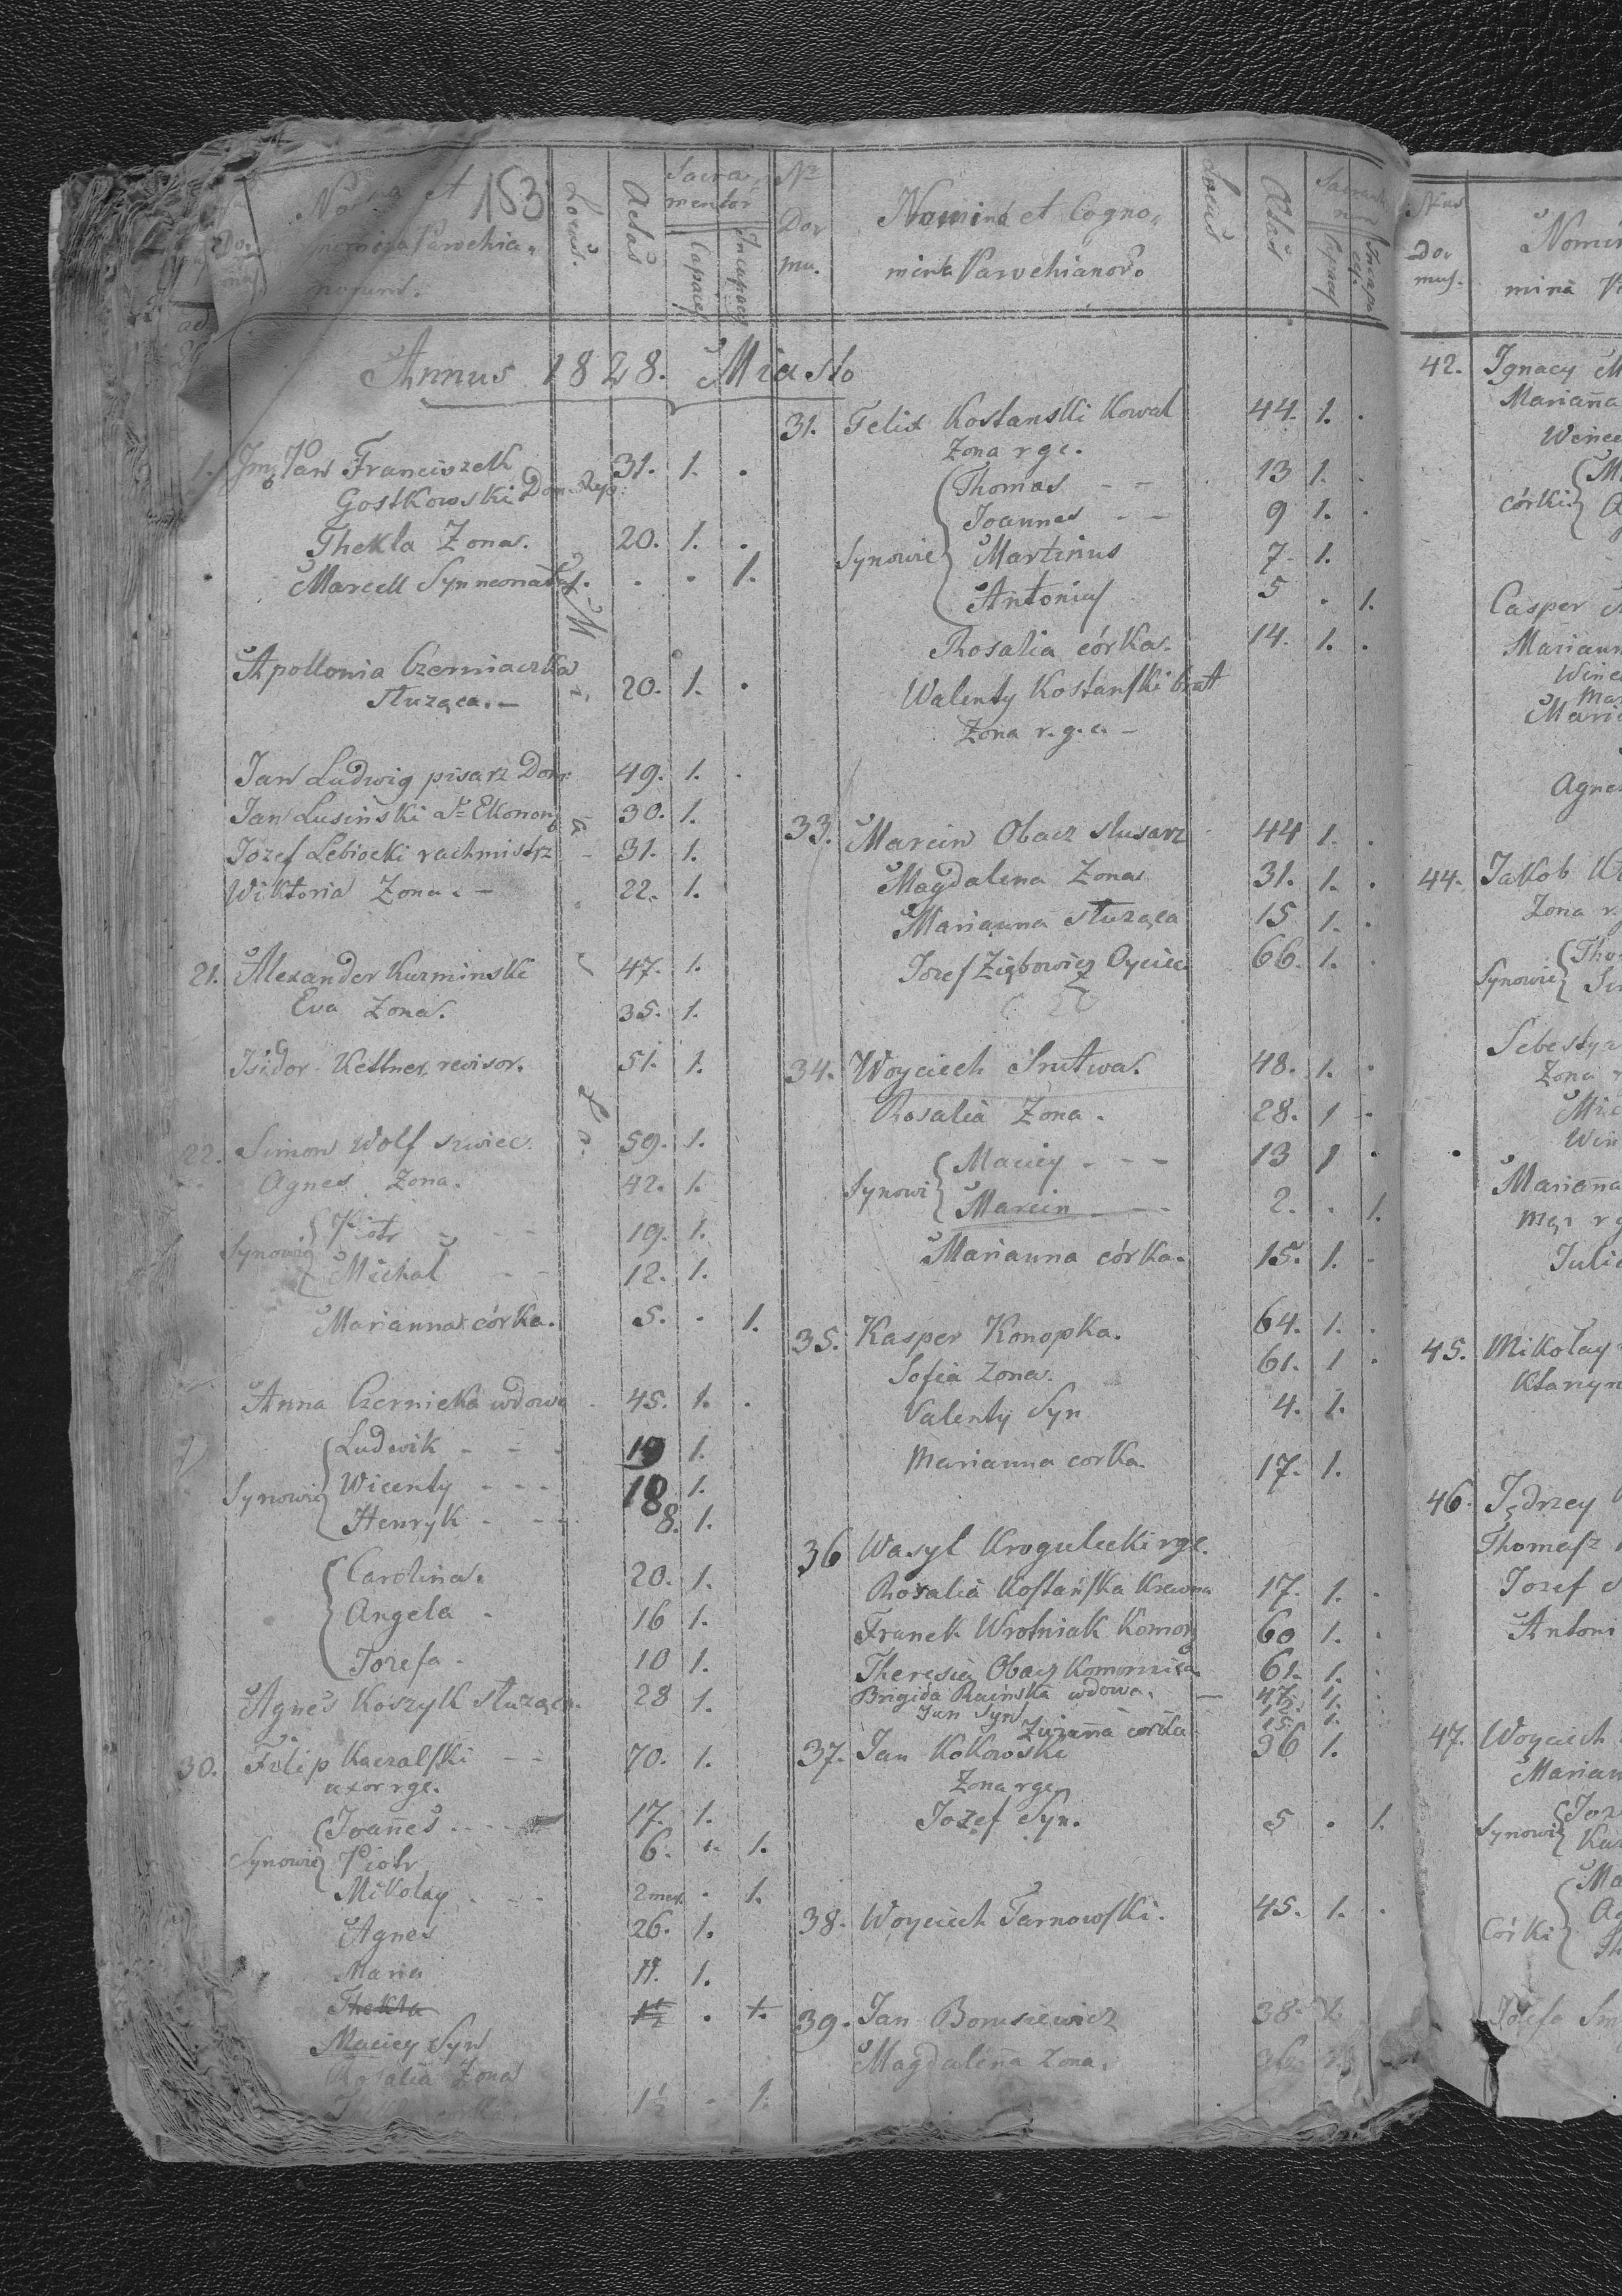 153
Do
Locus.
Aetas
Sacra
mentor
Capaces
Incapaces
Annus 1828. Miasto
1. Jmę Pan Franciszek 31. 1. .
Gostkowski Dom. Rep:
Thekla Zona. 20. 1. .
Marcell Syn neonatus. . . 1.
Apollonia Czerniaczka
służąca. — 20. 1. .
Jan Ludwig pisarz Dom: 49. 1. .
Jan Lusiński Ekonom 30. 1.
Jozef Lebiocki rachmistrz - 31. 1.
Wiktoria Zona. — 22. 1.
21. Alexander Kurminski 47. 1.
Eva Zona. 35. 1.
Isidor Kettner, revisor. 51. 1.
22. Simon Wolf szwiec. 59. 1.
Agnes Zona. 42. 1.
Synowie Piotr - - 19. 1.
Michał - - 12. 1.
Marianna córka. 5. . 1.
Anna Czernicka wdowa 45. 1. .
Ludwik - - - 19 1.
Synowie Wicenty - - - 18 1.
Henryk - - - 8. 1.
Carolina. 20. 1.
Angela - 16 1.
Jozefa - 10 1.
Agnes Koszyk służąca. 28 1.
30. Filip Kaczalski - - 70. 1.
uxor rge.
Joannes - - - 17. 1.
Synowie Piotr 6. . 1.
Mikołay - - - 2 mes. . 1.
Agnes 26. 1.
Maria 11. 1.
Thekla 1½ . 1.
Maciey Syn
Rosalia Zona
1½ . 1.
Nro
Domu.
Nomina et Cogno„
mina Parochianor.
Locus
Aetas
Capaces
Incapa
31. Felix Kostanski Kowal 44. 1. .
Zona rge.
Thomas - - 13 1. .
Joannes - - 9 1. .
Synowie Martinus 7. 1.
Antonius 5 . 1.
Rosalia córka. 14. 1. .
Walenty Kostanski brat
Zona r.g.c. —
33. Marcin Obacz slusarz 44 1. .
Magdalena Zona 31. 1. .
Marianna służąca 15 1. .
Jozef Ziębowicz Oyciec 66. 1. .
34. Woyciech Srutwa. 48. 1. .
Rosalia Zona. 28. 1 .
Maciey - - - 13 1 .
Synowi
Marcin - - - 2. . 1.
Marianna córka. 15. 1. .
35. Kasper Konopka. 64. 1. .
Sofia Zona. 61. 1 .
Valenty Syn 4. 1.
Marianna corka. 17. 1.
36 Wasyl Krogulecki rge.
Rosalia Kostanska Krewna 17. 1. .
Franek Wrotniak Komor 60 1. .
Theresia Obacz Komornica. 61. 1. .
Brigida Raińska wdowa. — 47. 1.
Jan Syn 12. 1.
Zuzanna corka 15. 1.
37. Jan Kokowski 36 1.
Zona rge
Jozef Syn. 5 . 1.
38. Woyciech Tarnowski. 45. 1. .
39. Jan Borusiewicz 38. 1.
Magdalena Zona. 36
Do„
mus.
Nomin
mina
42. Ignacy
Marianna
córki
Casper
Mariann
Agne
44. Jakob
Zona
Synowie
Sebestya
Zona
Marianna
Mąż
Julia
45. Mikołay
46. Jędrzey
Thomasz
Jozef
Antoni
47. Woyciech
Marian
Synowie
Córki